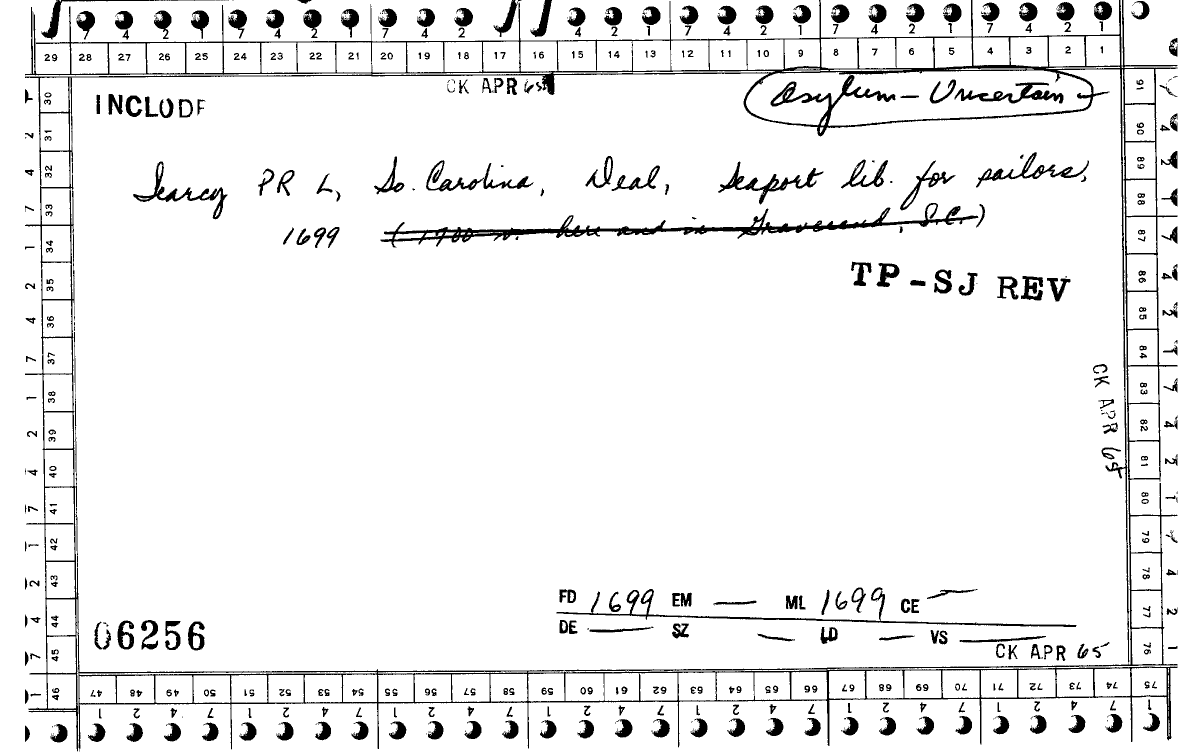 7 4 2 1 7 4 2 1 7 4 2 4 2 1 7 4 2 1 7 4 2 1 7 4 2 1
29 28 27 26 25 24 23 22 21 20 19 18 17 16 15 14 13 12 11 10 9 8 7 6 5 4 3 2 1
CK APR 65
INCLUDE
Asylum - Uncertain -
Searcy PR L, So. Carolina, Deal, Seaport lib. for sailors,
1699 (1900 v. here and in Gravesend, S.C.)
TP-SJ REV
CK APR 65
FD 1699 EM — ML 1699 CE —
DE — SZ — LD — VS —
06256
CK APR 65
30 31 32 33 34 35 36 37 38 39 40 41 42 43 44 45 46
2 4 7 1 2 4 7 1 2 4 7 1 2 4 7 1
91 90 89 88 87 86 85 84 83 82 81 80 79 78 77 76
47 48 49 50 51 52 53 54 55 56 57 58 59 60 61 62 63 64 65 66 67 68 69 70 71 72 73 74 75
1 2 4 7 1 2 4 7 1 2 4 7 1 2 4 7 1 2 4 7 1 2 4 7 1 2 4 7 1